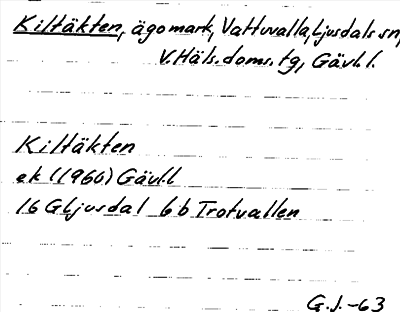 Kiltäkten, ägomark, Vattuvalla, Ljusdals sn,
V. Häls. doms. tg, Gävl. l.
Kiltäkten
ek (1960) Gävl.l
16 G Ljusdal 6b Trotvallen
G.J.-63